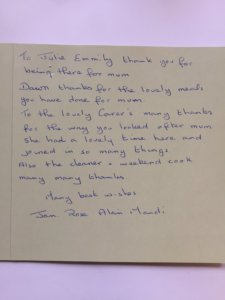 To Julie Emmily thank you for
being there for mum
Dawn thanks for the lovely meals
you have done for mum.
To the lovely Carer's many thanks
for the way you looked after mum
she had a lovely time here and
joined in so many things.
Also the cleaner + weekend cook
many many thanks
Many best wishes
Jan Rose Alan Mandi